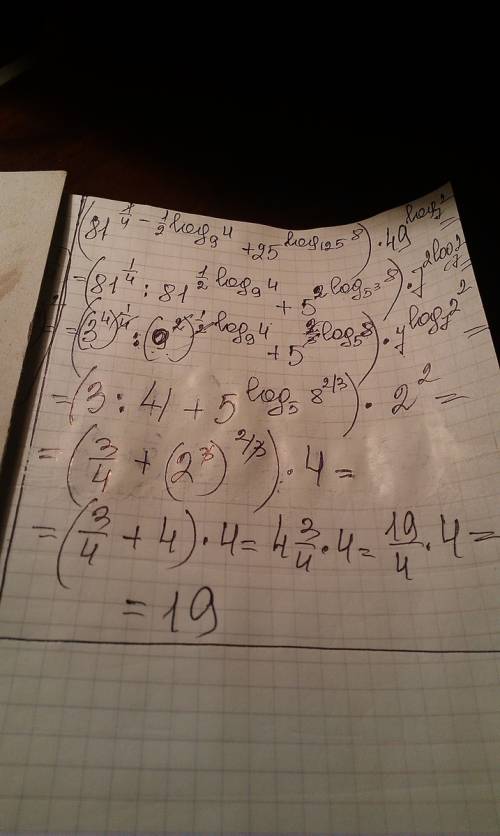 (81^{1/4 - 1/2 log_9 4} + 25^{log_{125} 8}) · 49^{log_7 2} =
= (81^{1/4} : 81^{1/2 log_9 4} + 5^{2 log_{5^3} 8}) · 7^{2 log_7 2} =
= ((3^4)^{1/4} : (9^2)^{1/2 log_9 4} + 5^{2/3 log_5 8}) · 7^{log_7 2^2} =
= (3 : 4 + 5^{log_5 8^{2/3}}) · 2^2 =
= (3/4 + (2^3)^{2/3}) · 4 =
= (3/4 + 4) · 4 = 4 3/4 · 4 = 19/4 · 4 =
= 19